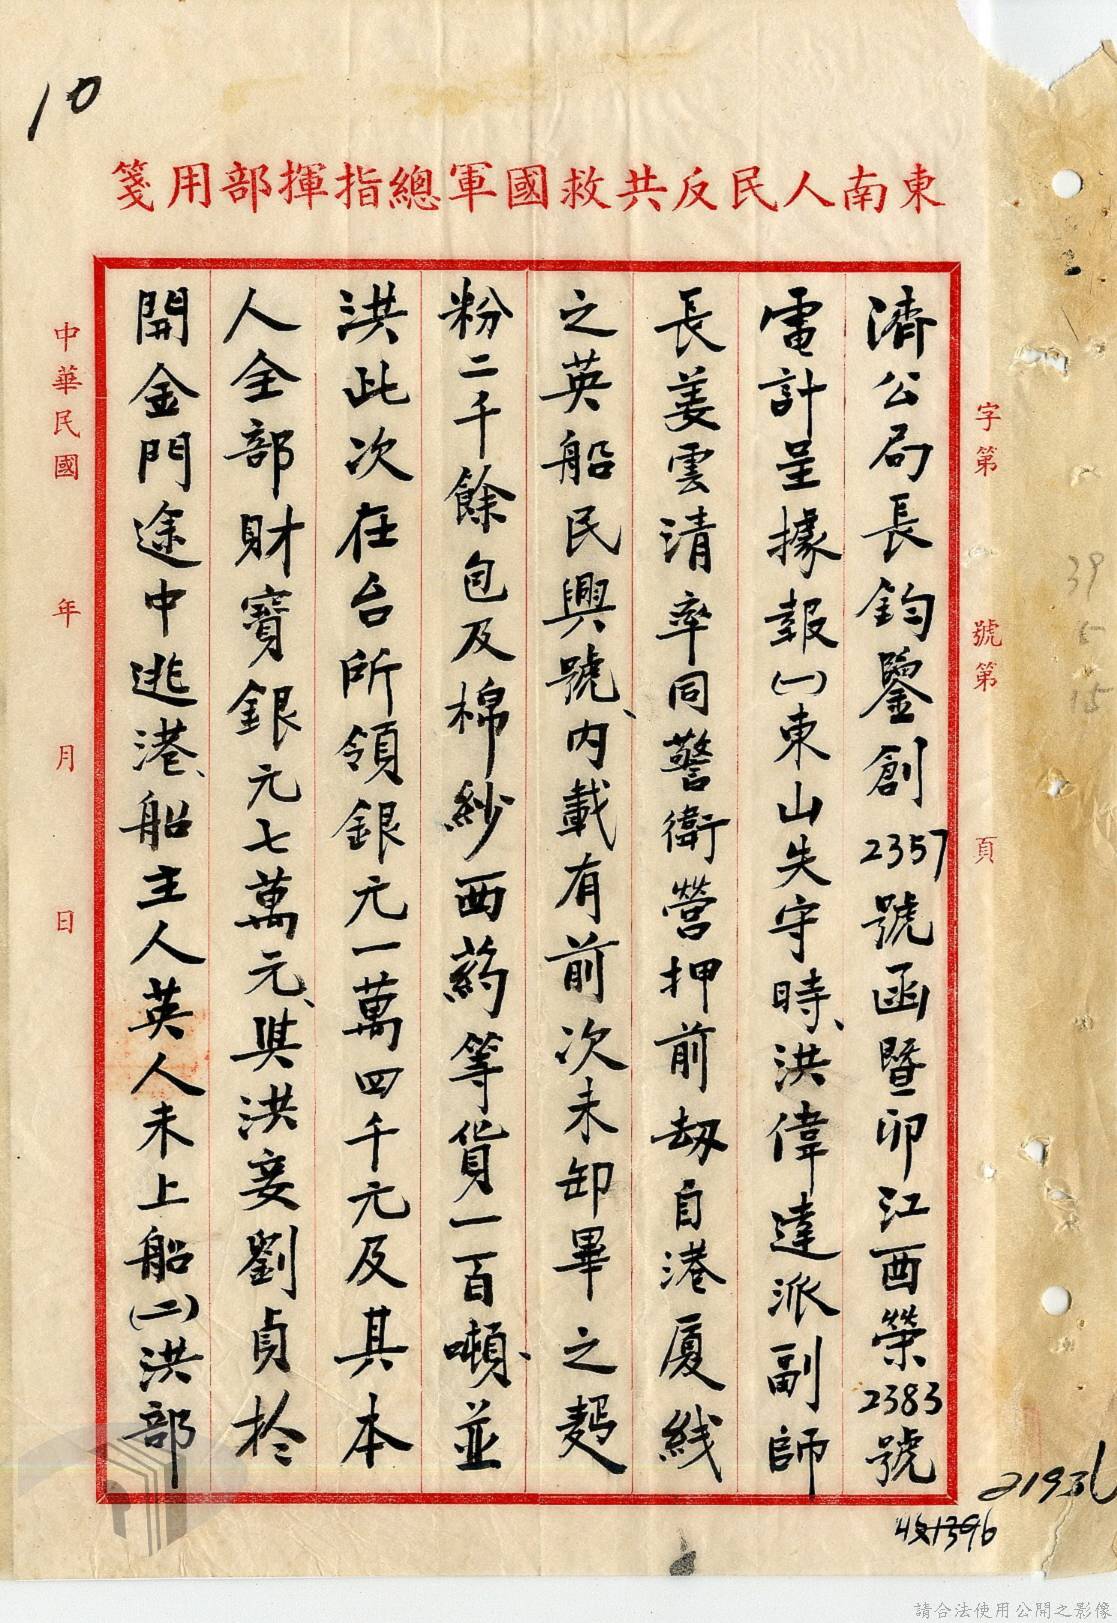 10
東南人民反共救國軍總指揮部用箋
字第　　號第　　頁
濟公局長鈞鑒創2357號函暨卯江酉榮2383號
電計呈據報(一)東山失守時、洪偉達派副師
長姜雲清率同警衛營押前劫自港廈线
之英船民興號、內載有前次未卸畢之麵
粉二千餘包及棉紗西葯等貨一百噸、並
洪此次在台所領銀元一萬四千元及其本
人全部財寶銀元七萬元、與洪妾劉貞於
開金門途中逃港、船主人英人未上船(二)洪部
中華民國　　年　　月　　日
39
5
15
21936
請合法使用公開之影像